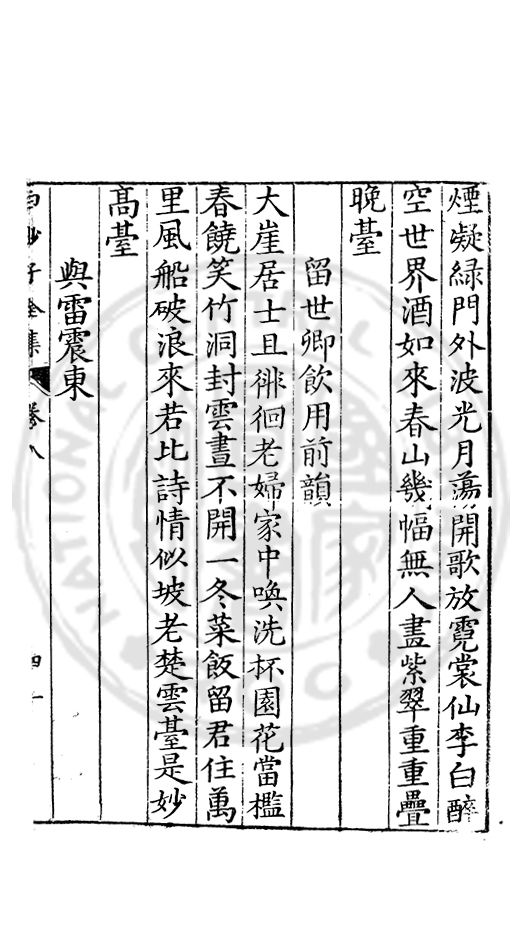 煙凝綠門外波光月蕩開歌放霓裳仙李白醉
空世界酒如來春山幾幅無人畫紫翠重重疊
晚臺
留世卿飲用前韻
大崖居士且徘徊老婦家中喚洗杯園花當檻
春饒笑竹洞封雲晝不開一冬菜飯留君住萬
里風船破浪來若比詩情似坡老楚雲臺是妙
高臺
與雷震東
白沙子全集 卷八